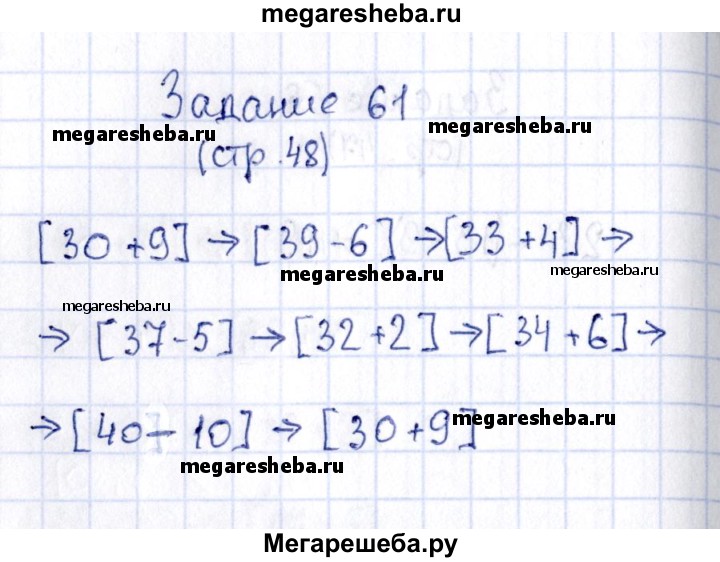 megaresheba.ru
Задание 61
megaresheba.ru
megaresheba.ru
(стр. 48)
[30+9] → [39-6] → [33+4] →
megaresheba.ru
megaresheba.ru
megaresheba.ru
→ [37-5] → [32+2] → [34+6] →
→ [40-10] → [30+9]
megaresheba.ru
megaresheba.ru
Мегарешеба.ру